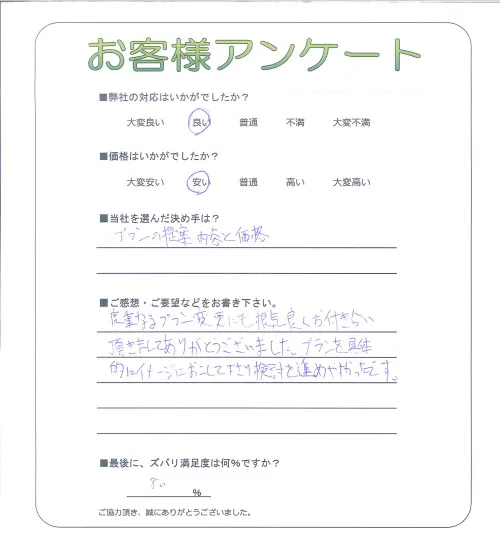 お客様アンケート
■弊社の対応はいかがでしたか？
大変良い 良い 普通 不満 大変不満
■価格はいかがでしたか？
大変安い 安い 普通 高い 大変高い
■当社を選んだ決め手は？
・プランの提案内容と価格
■ご感想・ご要望などをお書き下さい。
度重なるプラン変更にも根気良くお付き合い
頂きましてありがとうございました。プランを具体
的にイメージにおこして下さり検討を進めやすかったです。
■最後に、ズバリ満足度は何%ですか？
80 %
ご協力頂き、誠にありがとうございました。